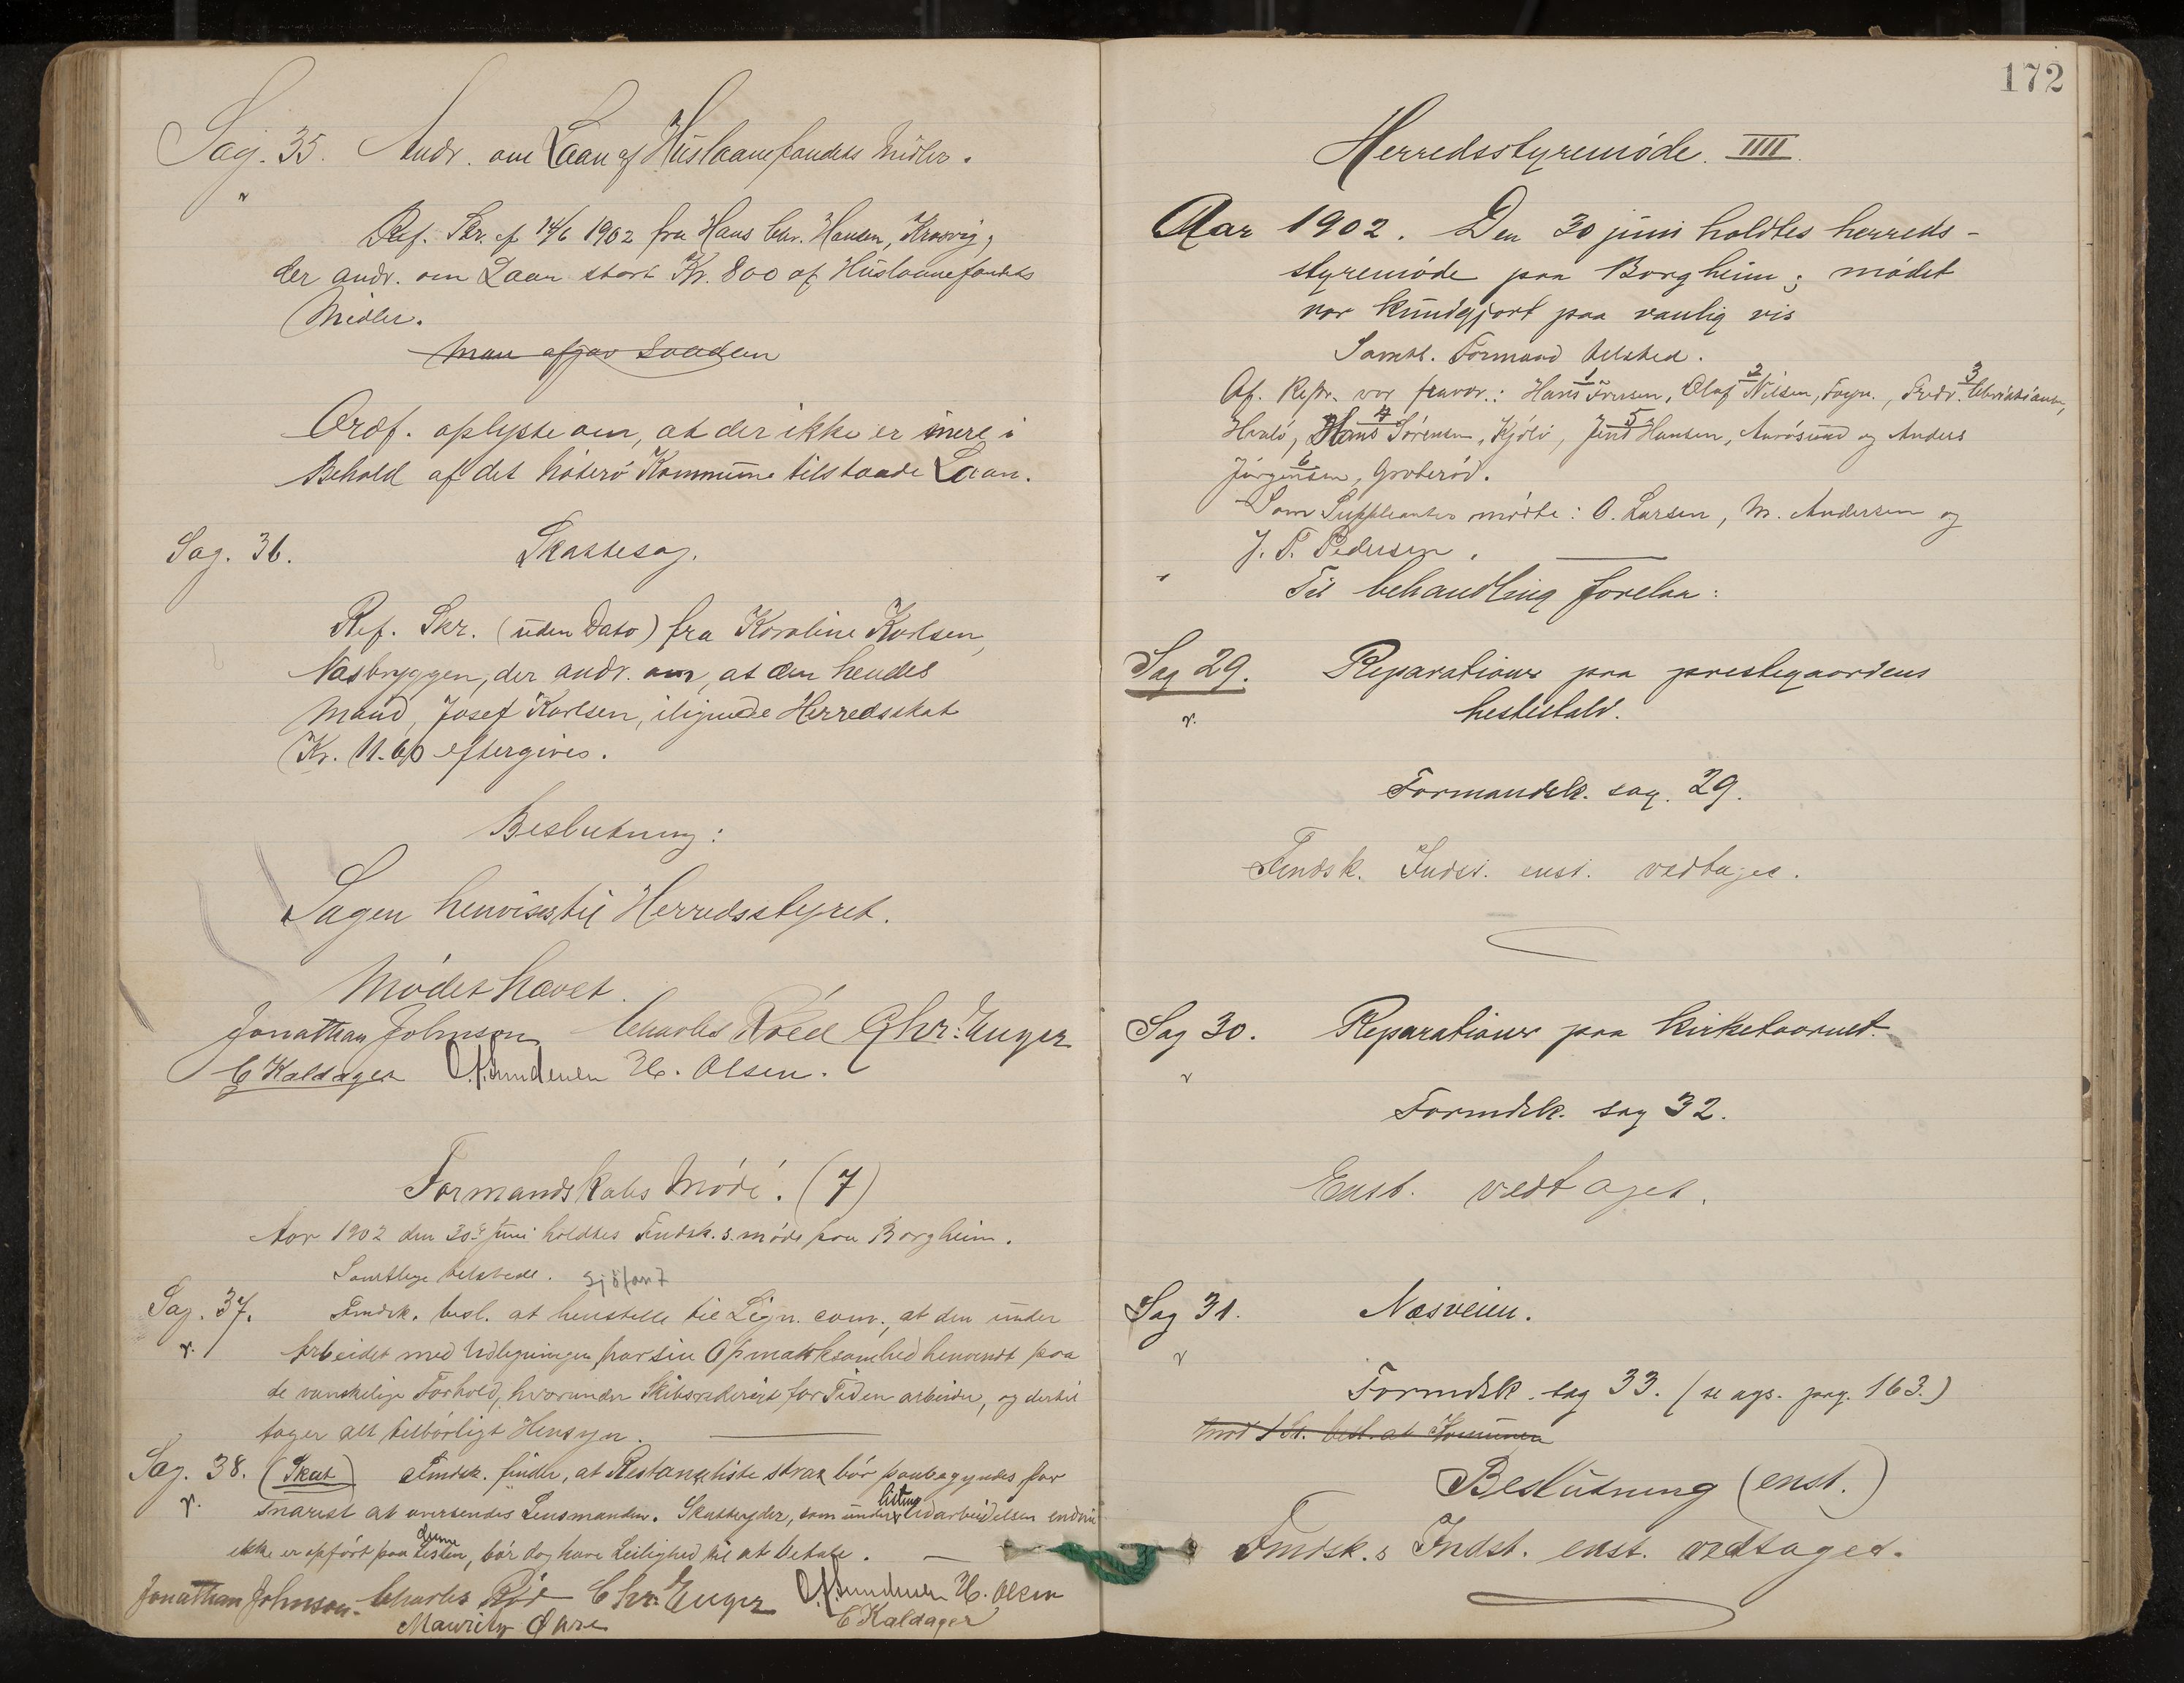 Sag. 35. Andr. om Laan af Huslaanefondets Midler.
Ref. Skr. af 14/6 1902 fra Hans Chr. Hansen,
der andr. om Laan stort Kr. 800 af Huslaanefondets
Midler.
Man afgav saadan
Ordf. oplyste om, at der ikke er mere i
Behold af det Nøterø Kommune tilstaaede Laan.
Sag. 36. Skattesag.
Ref. Skr. (uden Dato) fra Karoline Karlsen,
Næsbryggen, der andr. om, at den hendes
Mand, Josef Karlsen, ilignede Herredsskat
Kr. 11.60 eftergives.
Beslutning:
Sagen henvises til Herredsstyret.
Mødet hævet.
Jonathan Johnson Charles Røed Chr. Unger
C Kaldager H. Olsen.
Formandskabs Møde. (7)
Aar 1902 den 30te Juni holdtes Fmdsk.s. møde paa Borgheim.
Samtlige tilstede.
Sag. 37. Fmdsk. besl. at henstille til Lign. com., at den under
Arbeidet med Udligningen har sin Opmærksomhed henvendt paa
de vanskelige Forhold, hvorunder Skibsrederiet for Tiden arbeider, og dertil
tager alt tilbørligt Hensyn.
Sag. 38. (Skat) Fmdsk. finder, at Restanceliste strax bør paabegyndes for
listens
snarest at oversendes Lensmanden. Skatteyder, som under Udarbeidelsen endnu
denne
ikke er opført paa Listen, bør dog have Leilighed til at betale.
Jonathan Johnson. Charles Røed Chr. Unger H. Olsen
C Kaldager
172
Herredsstyremøde. IIII.
Aar 1902. Den 30 juni holdtes herreds-
styremøde paa Borgheim; mødet
var kundgjort paa vanlig vis
Samtl. Formænd tilsted.
1 2 3
Af Repr. var fravær.: Hans Iversen, Olaf Nilsen, Fredr. Christiansen,
4 5
Hans Sørensen, Kjøle, Hansen, Aarøsund og Anders
6
Jørgensen, Groterød.
Som Suppleanter mødte: O. Larsen, M. Andersen og
J. P. Pedersen.
Til behandling forelaa:
Sag 29. Reparationer paa prestegaardens
hestestald.
Formandsk. sag. 29.
Fmdsk. Indst. enst. vedtages.
Sag 30. Reparationer paa kirketaarnet.
Formdsk. sag 32.
Enst. vedtaget.
Sag 31. Næsveien.
Formdsk. sag 33. (se ags. pag. 163.)
Mod 1 St. besl. at Kommunen
Beslutning (enst.)
Fmdsk.s Indst. enst. vedtaged.